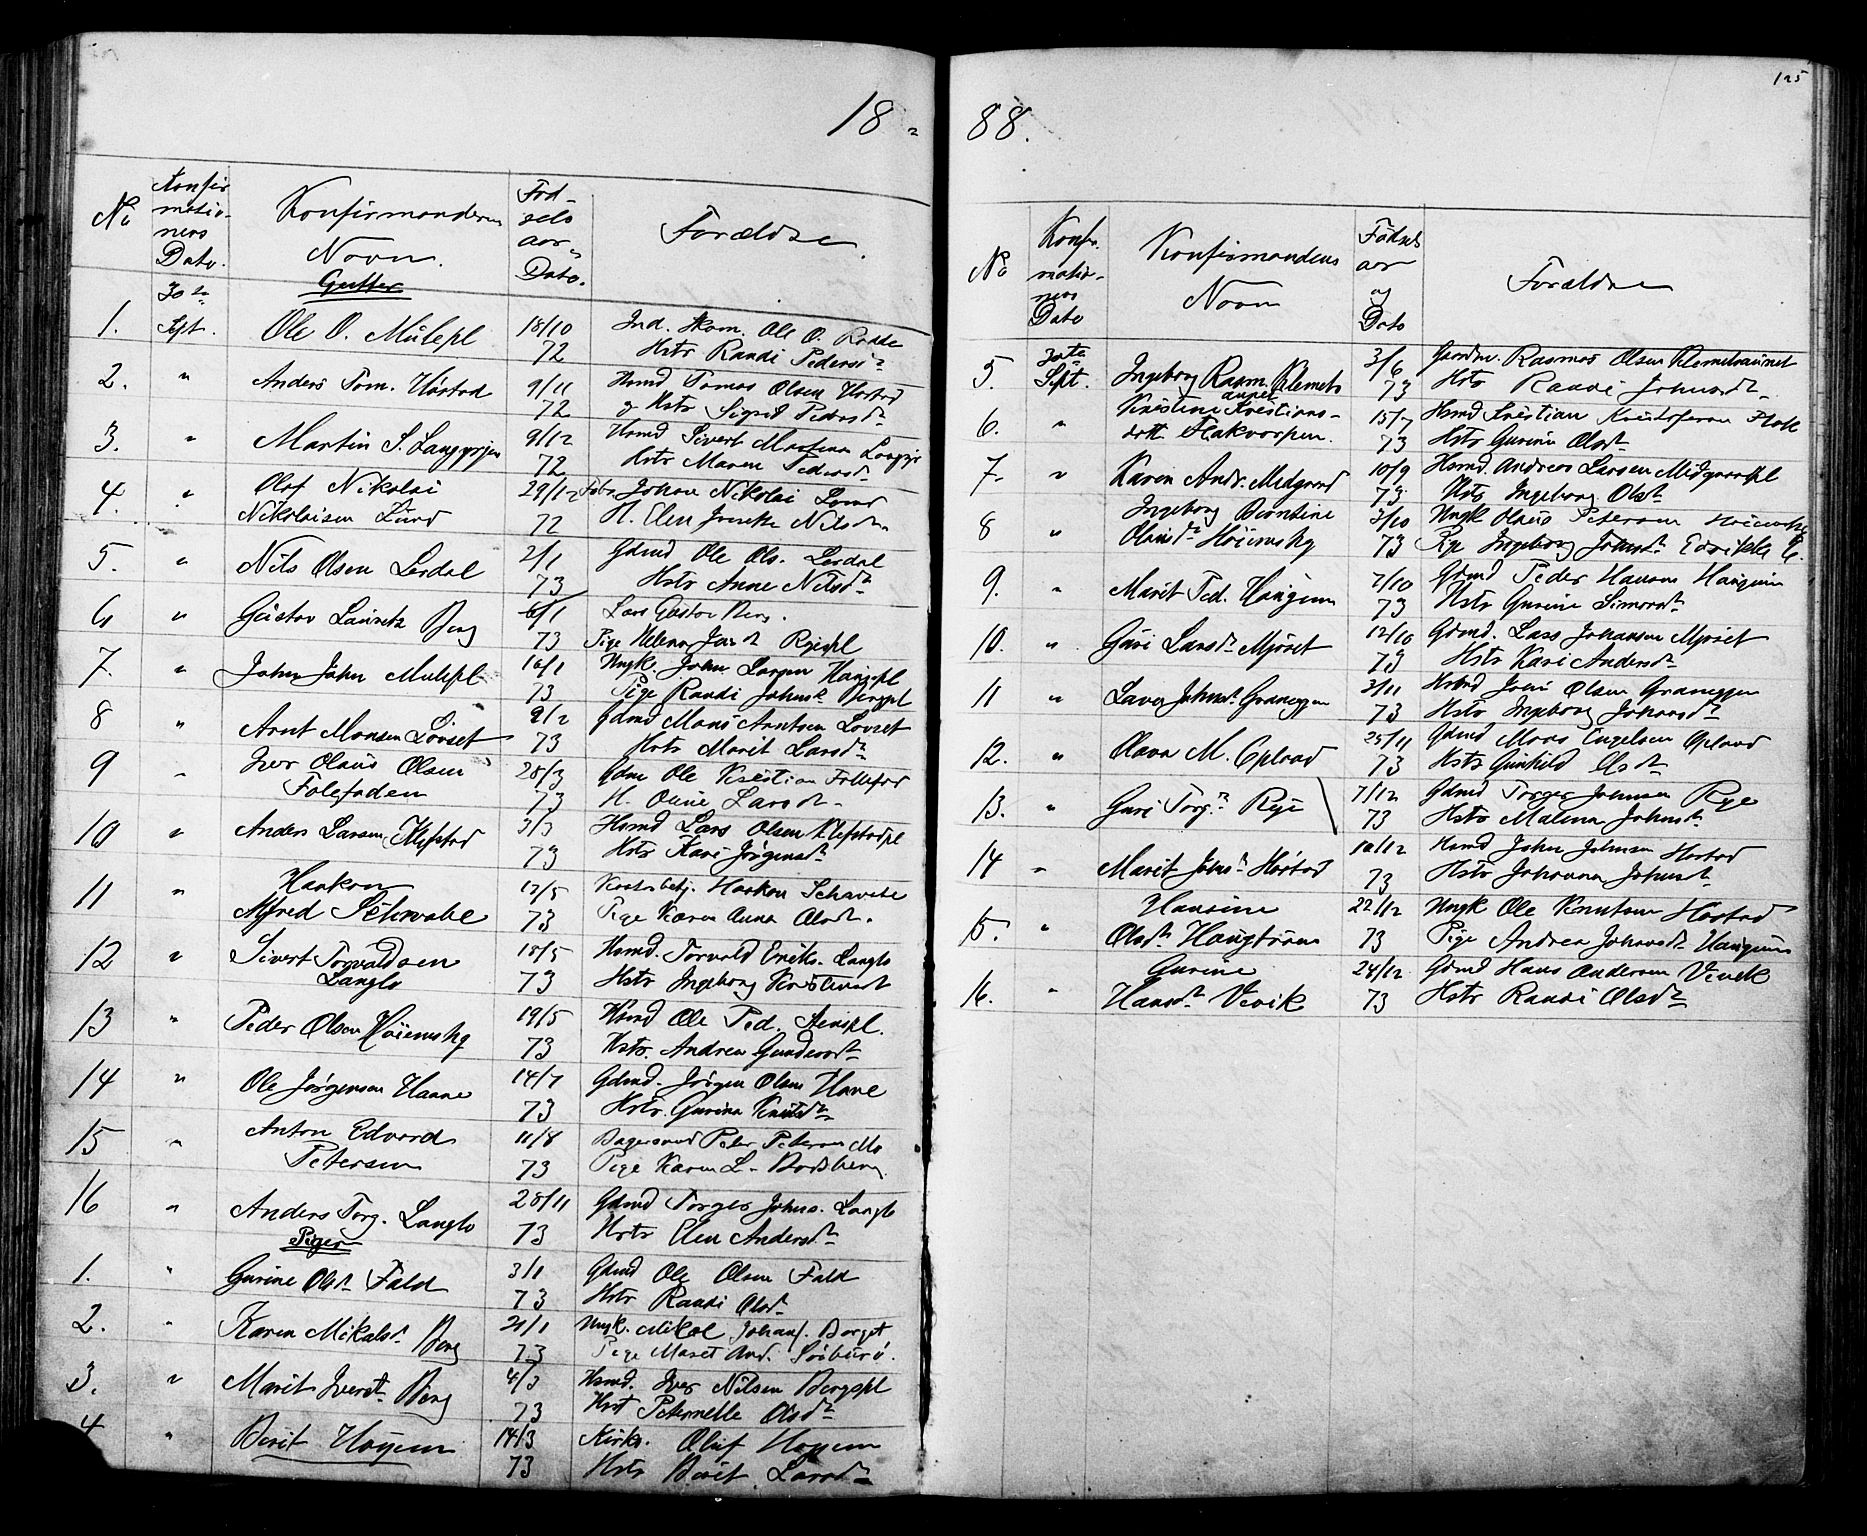 18 -
No
Konfir
matio-
nens
Dato.
Konfirmandens
Navn.
Fød-
sels
aar
Dato.
Forældre
Gutter
1. 30te Sept. Ole O. Mülepl 18/10 72 Ind. Ole O.
Hstr Randi Pedersdr
2. " Anders Tom. Høstad 9/11 72 Hsmd Tomas Olsen Høstad
og Hstr Sigrid Pedersdr
3. " Martin S. 9/12 72 Hsmd Sivert Martinsen
Hstr Maren Pedersdr
4. " Olaf Nikolai
Nikolaisen Lund 29/12 72 Johan Nikolai Lund
H. Elen Nilsdr
5. " Nils Olsen Lerdal 2/1 73 Gdmd Ole Ols. Lerdal
Hstr Anne Nilsdr
6 " Gustav Lauretz Berg 6/1 73 Lars Gustav Berg.
Pige Helena
7. " John John Mulepl 16/1 73 Ungk. John Larsen Haugpl
Pige Randi Johnsdr Bergpl
8 " Arnt Monsen Løvset 9/2 73 Gdmd Mons Arntsen Lovset
Hstr Marit Larsdr
9 " Iver Olaus Olsen
Folefoden 28/3 73 Gdm Ole Kristian
H. Oline Larsdr
10 " Anders Larsen Klefstad 3/3 73 Hsmd Lars Olsen Klefstadpl
Hstr Kari Jørgensdr
11 " Haakon
Alfred Schwabe 12/5 73 Haakon Schwabe
Pige Karen Anna Olsdr.
12 " Sivert Torvaldsen
Langlo 18/5 73 Hsmd. Torvald Eriks. Langlo
Hstr Ingeborg
13 " Peder Olsen Høiemshg 19/5 73 Hsmd Ole Ped.
Hstr. Andrea
14 " Ole Jørgensen Hanne 14/7 73 Gdmd. Jørgen Olsen Hane
Hstr. Gurina Knutsdr
15 " Anton Edvard
Petersen 11/8 73 Bagersvend Peter Petersen Mo
Pige Karen L.
16 " Anders Torg. Langlo 28/11 73 Gdmd Torger Johns. Langlo
Hstr Elen Andersdr
Piger
1. " Gurine Olsdr Fald 3/1 73 Gdmd Ole Olsen Fald
Hstr Randi Olsdr
2. " Karen Mikalsdr Berg 21/1 73 Ungk. Mikal
Pige Maret And.
3. " Marit Iversdr Berg 4/3 73 Hsmd. Iver Nilsen Bergspl
Hst Peternelle Olsdr
4 " Berit Høyem 14/3 73 Kirks. Oluf Høyem
Hstr Berit Larsdr
125
88.
No
Konfir
matio-
nens
Dato
Konfirmandens
Navn
Fødsels
aar
og
Dato
Forældre
5. 30te Sept. Ingeborg Rasm. Klemets 3/6 73 Gaardm. Rasmus Olsen
Hstr Randi Johnsdr
6. " Kristine Kristians-
dtt 15/7 73 Hsmd Kristian
Hstr Gurine Olsdr
7. " Karen Andr. Midgard 10/9 73 Hsmd. Andreas Larsen
Hstr Ingeborg Olsdr
8 " Ingeborg
Olausdr Høiemshg 3/10 73 Ungk Olaus Petersen
Pige Ingeborg Johnsdr
9. " Marit Ped. Haugum 7/10 73 Gdmd Peder Hansen Haugum
Hstr Gurine Simonsdr
10. " Guri Larsdr Mjøset 12/10 73 Gdmd. Lars Johansen Mjøset
Hstr Kari Andersdr
11 " Johnsdr Graneggen 3/11 73 Hsmd John Olsen Graneggen
Hstr Ingeborg Johansdr
12. " Olava M. Opland 25/11 73 Gdmd Mons Engelsen Opland
Hstr Gunhild Olsdr
13. " Guri Torg.dr Rye 7/12 73 Gdmd Torger Johnsen Rye
Hstr Malena Johnsdr
14 " Marit Johnsdr Høstad 10/12 73 Hsmd John Johnsen Høstad
Hstr Johanna Johnsdr
15. " Hansine
Olsdr 22/12 73 Ungk Ole Knutsen Høstad
Pige Andrea Johansdr Haugum
16. " Gurine
Hansdr Vevik 24/12 73 Gdmd Hans Andersen Vevik
Hstr Randi Olsdr